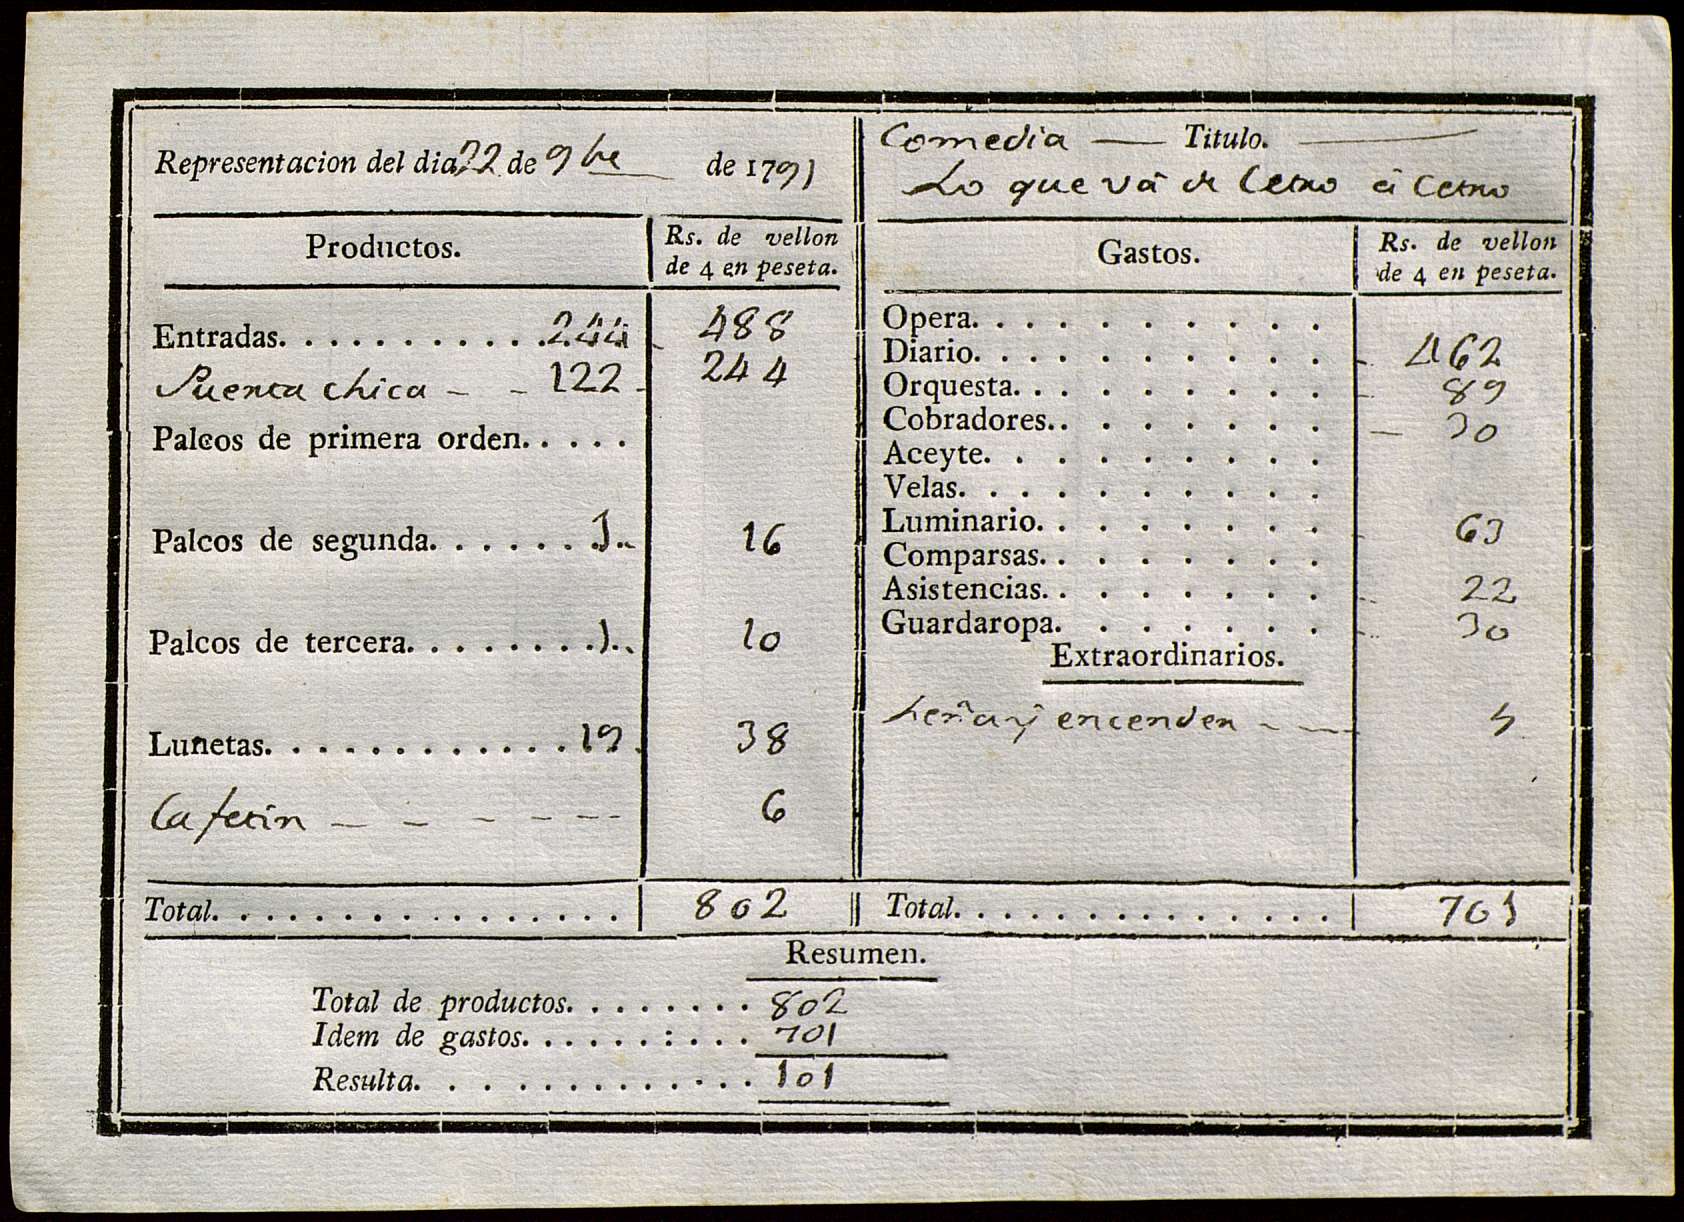 Representacion del dia 22 de 9bre de 1791
Productos.
Rs. de vellon
de 4 en peseta.
Entradas. . . . . . . . . . . 244 488
Puerta chica - - 122 - 244
Palcos de primera orden. . . . .
Palcos de segunda. . . . . . 1 16
Palcos de tercera. . . . . . . . 1 10
Lunetas. . . . . . . . . . . . 19 38
Cafetin - - - - - - 6
Total. . . . . . . . . . . . . . . 802
Comedia — Titulo. —
Lo que vâ de Cetro â Cetro
Gastos.
Rs. de vellon
de 4 en peseta.
Opera. . . . . . . . . .
Diario. . . . . . . . . . 462
Orquesta. . . . . . . . . 89
Cobradores. . . . . . . . — 30
Aceyte. . . . . . . . .
Velas. . . . . . . . . .
Luminario. . . . . . . . 63
Comparsas. . . . . . . .
Asistencias. . . . . . . . 22
Guardaropa. . . . . . . 30
Extraordinarios.
Leña y encender - - 5
Total. . . . . . . . . . . . . . 701
Resumen.
Total de productos. . . . . . . . 802
Idem de gastos. . . . . . : . . . 701
Resulta. . . . . . . . . . . . . 101